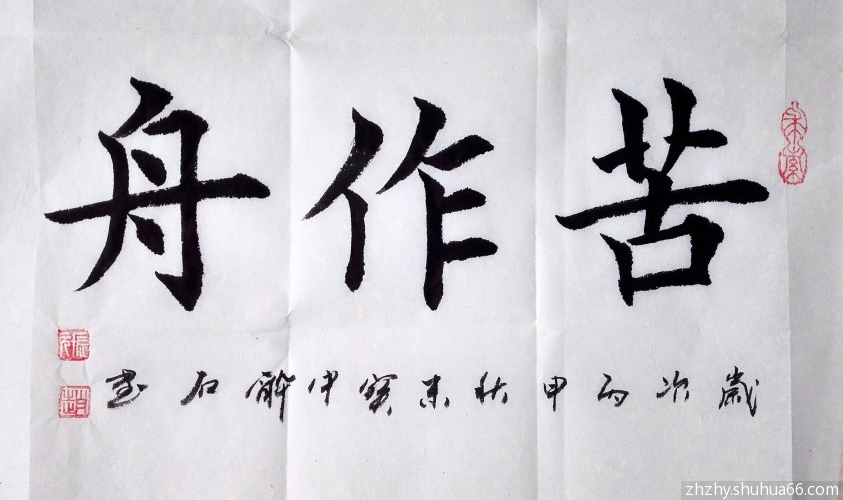 苦作舟
歲次丙申秋末寅中解石书
zhzhyshuhua66.com